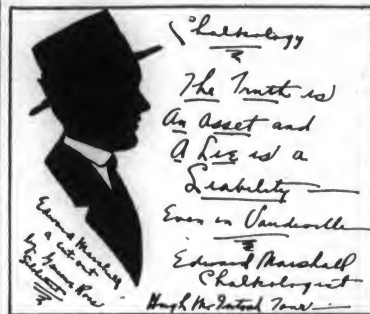 Chalkology
The Truth is
An Asset and
A Lie is a
Liability
Even in Vaudeville
Edward Marshall
Chalkologist
Hugh McIntosh Tour
Edward Marshall
a cut out
by